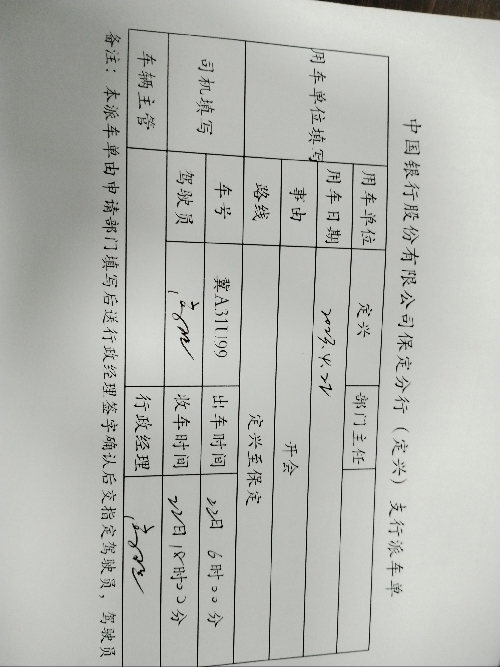 中国银行股份有限公司保定分行（定兴）支行派车单
用车单位填写 用车单位 定兴 部门主任
用车日期 2023.4.22
事由 开会
路线 定兴至保定
司机填写 车号 冀A311U99 出车时间 22日 6时00分
驾驶员 收车时间 22日18时00分
车辆主管 行政经理
备注：本派车单由申请部门填写后送行政经理签字确认后交指定驾驶员，驾驶员